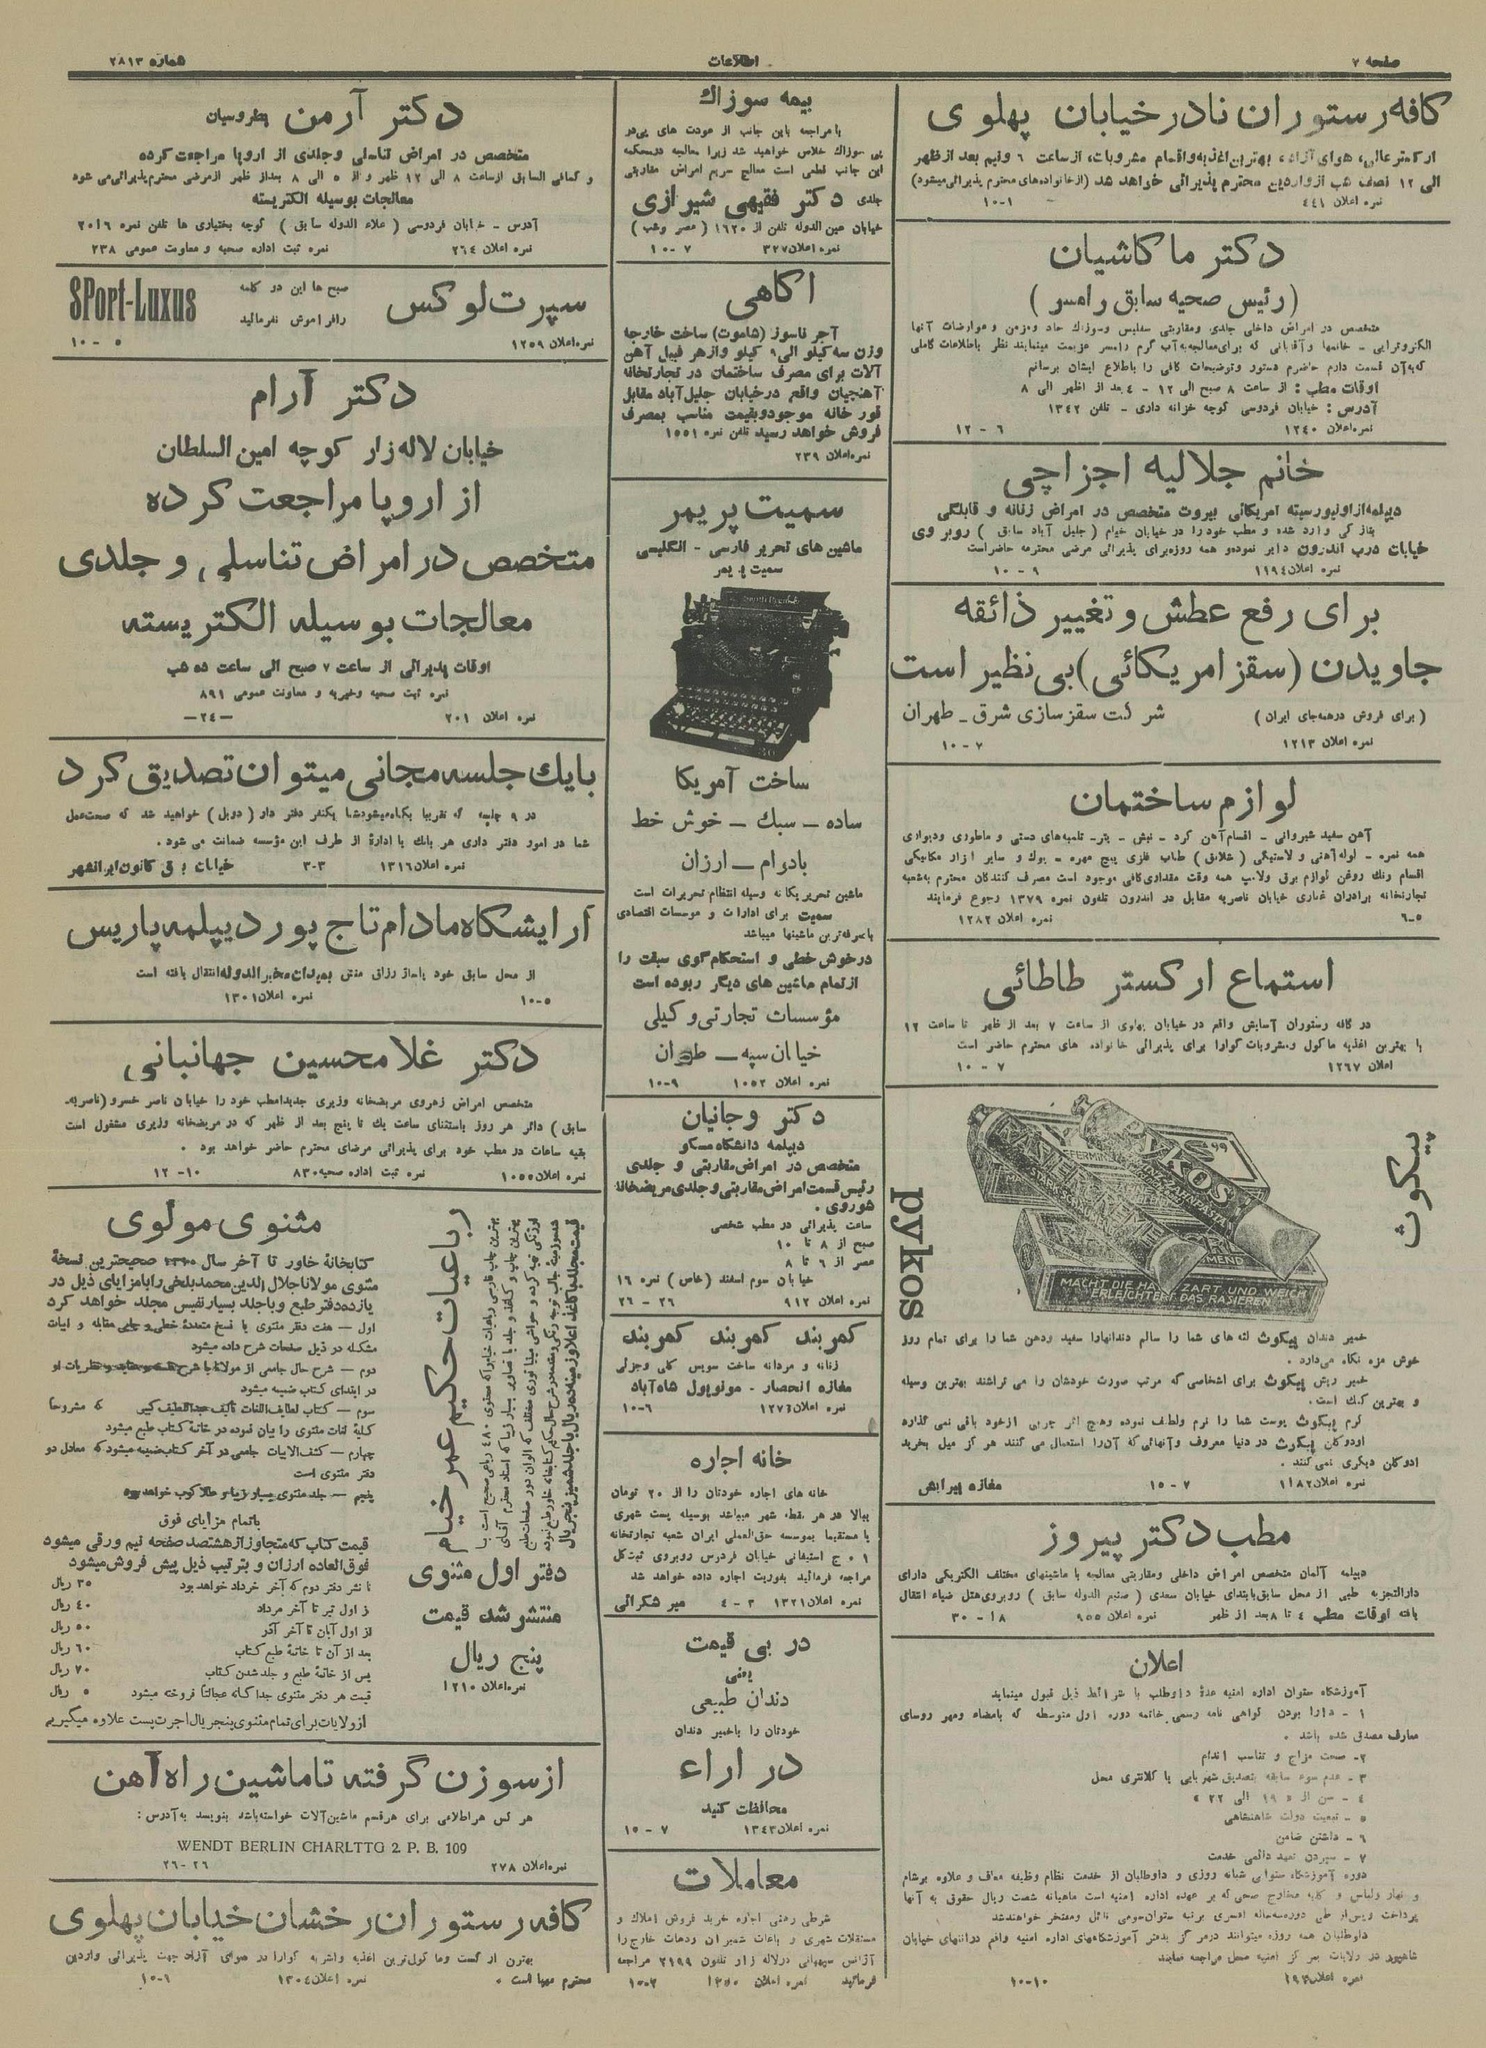 صفحه ۷
اطلاعات
شماره ۲۸۱۳
کافه رستوران نادر خیابان پهلوی
ارکستر عالی، هوای آزاد، بهترین اغذیه و اقسام مشروبات، از ساعت ۶ ونیم بعد از ظهر
الی ۱۲ نصف شب از واردین محترم پذیرائی خواهد شد (از خانواده‌های محترم پذیرائی میشود)
نمره اعلان ۴۴۱ ۱-۱۰
دکتر ماکاشیان
(رئیس صحیه سابق رامسر)
متخصص در امراض داخلی جلدی ومقاربتی سفلیس وسوزاك حاد ومزمن و عوارضات آنها
الکتروتراپی - خانمها وآقایانی که برای معالجه به آب گرم رامسر عزیمت مینمایند نظر باطلاعات کاملی
که به آن قسمت دارم حاضرم دستور وتوضیحات کافی را باطلاع ایشان برسانم
اوقات مطب: از ساعت ۸ صبح الی ۱۲ - ۴ بعد از ظهر الی ۸
آدرس: خیابان فردوسی کوچه خزانه داری - تلفن ۱۳۴۲
نمره اعلان ۱۲۴۰ ۶ - ۱۲
خانم جلالیه اجزاچی
دیپلمه از اونیورسیته امریکائی بیروت متخصص در امراض زنانه و قابلگی
بتازگی وارد شده و مطب خود را در خیابان خیام (جلیل آباد سابق) روبروی
خیابات درب اندرون دایر نموده و همه روزه برای پذیرائی مرضی محترمه حاضر است
نمره اعلان ۱۱۹۴ ۹ - ۱۰
برای رفع عطش و تغییر ذائقه
جاویدن (سقز امریکائی) بی نظیر است
(برای فروش در همه جای ایران) شرکت سقز سازی شرق - طهران
نمره اعلان ۱۲۱۳ ۷ - ۱۰
لوازم ساختمان
آهن سفید شیروانی - اقسام آهن گرد - نبش - پتر - تلمبه‌های دستی و ماطوری ودیواری
همه نمره - لوله آهنی و لاستیکی (شلانق) طناب فلزی پیچ مهره - بوك و سایر ابزار مکانیکی
اقسام رنك روغن لوازم برقی ولامپ همه وقت مقداری کافی موجود است مصرف کنندگان محترم به شعبه
تجارتخانه برادران غفاری خیابان ناصریه مقابل در اندرون تلفون نمره ۱۳۷۹ رجوع فرمایند
نمره اعلان ۱۲۸۲ ۵-۶
استماع ارکستر طاطائی
در کافه رستوران آسایش واقع در خیابان پهلوی از ساعت ۷ بعد از ظهر تا ساعت ۱۲
با بهترین اغذیه ماکول ومشروبات گوارا برای پذیرائی خانواده های محترم حاضر است
اعلان ۱۲۶۷ ۷ - ۱۰
پیکوث
pykos
MACHT DIE HAUT ZART UND WEICH
ERLEICHTERT DAS RASIEREN
خمیر دندان پیکوث لثه های شما را سالم دندانها را سفید ودهن شما را برای تمام روز
خوش مزه نگاه می‌دارد.
خمیر ریش پیکوث برای اشخاصی که مرتب صورت خودشان را می تراشند بهترین وسیله
و بهترین کمك است.
کرم پیکوث پوست شما را نرم ولطیف نموده وهیچ اثر چربی از خود باقی نمی گذارد
اودوکلن پیکوث در دنیا معروف وآنهائی که آن را استعمال می کنند هر گز میل بخرید
ادوکلن دیگری نمی کنند.
نمره اعلان ۱۱۸۲ ۷ - ۱۵ مغازه پیرایش
مطب دکتر پیروز
دیپلمه آلمان متخصص امراض داخلی ومقاربتی معالجه با ماشینهای مختلف الکتریکی دارای
دارالتجزیه طبی از محل سابق بابتدای خیابان سعدی (صنیع الدوله سابق) روبروی هتل ضیاء انتقال
یافته اوقات مطب ۴ تا ۸ بعد از ظهر نمره اعلان ۹۵۵ ۱۸ - ۳۰
اعلان
آموزشگاه ستوان اداره امنیه عدهٔ داوطلب با شرائط ذیل قبول مینماید
۱ - دارا بودن گواهی نامه رسمی خاتمه دوره اول متوسطه که بامضاء ومهر روسای
معارف مصدق شده باشد.
۲- صحت مزاج و تناسب اندام
۳ - عدم سوء سابقه بتصدیق شهربانی یا کلانتری محل
۴ - سن از ۱۹ الی ۲۲
۵ - تبعیت دولت شاهنشاهی
۶ - داشتن ضامن
۷ - سپردن تعهد دائمی خدمت
دوره آموزشگاه ستوانی شبانه روزی و داوطلبان از خدمت نظام وظیفه معاف و علاوه برشام
و نهار ولباس و کلیه مخارج صحی که بر عهده اداره امنیه است ماهیانه شصت ریال حقوق به آنها
پرداخت وپس از طی دوره سه‌ساله افسری برتبه ستوان سومی نائل ومفتخر خواهند شد
داوطلبان همه روزه میتوانند در مرکز بدفتر آموزشگاههای اداره امنیه واقع در انتهای خیابان
شاهپور در ولایات بمرکز امنیه محل مراجعه نمایند
نمره اعلان ۱۰-۱۰
بیمه سوزاك
با مراجعه باین جانب از عودت های پی‌در
پی سوزاك خلاص خواهید شد زیرا معالجه در محکمه
این جانب قطعی است معالج سریع امراض مقاربتی
جلدی دکتر فقیهی شیرازی
خیابان عین الدوله تلفن از ۱۶۲۰ (عصر وشب)
نمره اعلان ۳۲۷ ۷ - ۱۰
آگاهی
آجر نسوز (شاموت) ساخت خارجه
وزن سه کیلو الی ۹ کیلو و از هر قبیل آهن
آلات برای مصرف ساختمان در تجارتخانه
آهنچیان واقع در خیابان جلیل آباد مقابل
قورخانه موجود و بقیمت مناسب بمصرف
فروش خواهد رسید تلفن نمره ۱۵۵۱
نمره اعلان ۲۳۹
سمیت پریمر
ماشین های تحریر فارسی - انگلیسی
سمیت پریمر
ساخت آمریکا
ساده - سبك - خوش خط
بادوام - ارزان
ماشین تحریر یگانه وسیله انتظام تحریرات است
سمیت برای ادارات و موسسات اقتصادی
باصرفه‌ترین ماشینها میباشد
در خوش خطی و استحکام گوی سبقت را
از تمام ماشین های دیگر ربوده است
مؤسسات تجارتی وکیلی
خیابان سپه - طهران
نمره اعلان ۱۰۵۲ ۹-۱۰
دکتر وجانیان
دیپلمه دانشگاه مسکو
متخصص در امراض مقاربتی و جلدی
رئیس قسمت امراض مقاربتی و جلدی مریضخانه
شوروی.
ساعت پذیرائی در مطب شخصی
صبح از ۸ تا ۱۰
عصر از ۶ تا ۸
خیابان سوم اسفند (خاص) نمره ۱۶
نمره اعلان ۹۱۲ ۲۶ - ۲۶
کمربند کمربند کمربند
زنانه و مردانه ساخت سویس کلی وجزئی
مغازه انحصار - مونوپول شاه آباد
نمره اعلان ۱۲۷۶ ۶-۱۰
خانه اجاره
خانه های اجاره خودتان را از ۲۰ تومان
ببالا در هر نقطه شهر میباشد بوسیله پست شهری
یا مستقیما بموسسه حق‌العملی ایران شعبه تجارتخانه
ا ۰ ج استپفانی خیابان فردوسی روبروی ثبت کل
مراجعه فرمائید بفوریت اجاره داده خواهد شد
نمره اعلان ۱۳۲۱ ۳ - ۴ میر شکرائی
در بی قیمت
یعنی
دندان طبیعی
خودتان را باخمیر دندان
در اراء
محافظت کنید
نمره اعلان ۱۳۴۳ ۷ - ۱۵
معاملات
شرطی رهنی اجاره خرید فروش املاك و
مستغلات شهری و باغات شمیران ودهات خارج را
آژانس سپهبانی در لاله زار تلفون ۲۱۹۹ مراجعه
فرمائید نمره اعلان ۳-۱۰
دکتر آرمن پطروسیان
متخصص در امراض تناسلی و جلدی از اروپا مراجعت کرده
و کمافی السابق از ساعت ۸ الی ۱۲ ظهر و از ۵ الی ۸ بعداز ظهر از مرضی محترم پذیرائی می شود
معالجات بوسیله الکتریسته
آدرس - خیابان فردوسی (علاء الدوله سابق) کوچه بختیاری ها تلفن نمره ۲۰۱۶
نمره اعلان ۲۶۴ نمره ثبت اداره صحیه و معاونت عمومی ۲۳۸
سپرت لوکس
صبح ها این دو کلمه
را فراموش نفرمائید
SPort-Luxus
نمره اعلان ۱۲۵۹ ۵ - ۱۰
دکتر آرام
خیابان لاله زار کوچه امین السلطان
از اروپا مراجعت کرده
متخصص در امراض تناسلی و جلدی
معالجات بوسیله الکتریسته
اوقات پذیرائی از ساعت ۷ صبح الی ساعت ده شب
نمره ثبت صحیه وخیریه و معاونت عمومی ۸۹۱
نمره اعلان ۲۰۱ —۲۴—
با یك جلسه مجانی میتوان تصدیق کرد
در ۹ جلسه که تقریبا یکماه میشود شما یکنفر دفتر دار (دوبل) خواهید شد که صحت عمل
شما در امور دفتر داری هر بانك یا ادارهٔ از طرف این مؤسسه ضمانت می شود.
نمره اعلان ۱۳۱۶ ۳-۳ خیابان برق کانون ایرانشهر
آرایشگاه مادام تاج پور دیپلمه پاریس
از محل سابق خود پاساژ رزاق منش بمیدان مخبرالدوله انتقال یافته است
۵-۱۰ نمره اعلان ۱۳۰۱
دکتر غلامحسین جهانبانی
متخصص امراض زهروی مریضخانه وزیری جدیدا مطب خود را خیابان ناصر خسرو (ناصریه
سابق) دائر هر روز باستثنای ساعت یك تا پنج بعد از ظهر که در مریضخانه وزیری مشغول است
بقیه ساعات در مطب خود برای پذیرائی مرضای محترم حاضر خواهد بود.
نمره اعلان ۱۰۵۵ نمره ثبت اداره صحیه ۸۳۰ ۱۰- ۱۲
رباعیات حکیم عمر خیام
دفتر اول مثنوی
منتشر شد قیمت
پنج ریال
نمره اعلان ۱۲۱۰
مثنوی مولوی
کتابخانهٔ خاور تا آخر سال صحیحترین نسخهٔ
مثنوی مولانا جلال الدین محمد بلخی را با مزایای ذیل در
یازده دفتر طبع و با جلد بسیار نفیس مجلد خواهد کرد
اول - هفت دفتر مثنوی با نسخ متعددهٔ خطی و چاپی مقابله و ابیات
مشکله در ذیل صفحات شرح داده میشود
دوم - شرح حال جامعی از مولانا با شرح و نظریات او
در ابتدای کتاب ضمیمه میشود
سوم - کتاب لطایف اللغات تألیف عبداللطیف کبیر که مشروحا
کلیهٔ لغات مثنوی را بیان نموده در خاتمهٔ کتاب طبع میشود
چهارم - کشف الابیات جامعی در آخر کتاب ضمیمه میشود که معادل دو
دفتر مثنوی است
پنجم - جلد مثنوی بسیار زیبا و طلاکوب خواهد بود
باتمام مزایای فوق
قیمت کتاب که متجاوز از هشتصد صفحه نیم ورقی میشود
فوق‌العاده ارزان و بترتیب ذیل پیش فروش میشود
تا نشر دفتر دوم که آخر خرداد خواهد بود ۳۵ ریال
از اول تیر تا آخر مرداد ۴۰ ریال
از اول آبان تا آخر آذر ۵۰ ریال
بعد از آن تا خاتمهٔ طبع کتاب ۶۰ ریال
پس از خاتمهٔ طبع و جلد شدن کتاب ۷۰ ریال
قیمت هر دفتر مثنوی جداگانه عجالتاً فروخته میشود ۵ ریال
از ولایات برای تمام مثنوی پنجریال اجرت پست علاوه میگیریم
از سوزن گرفته تا ماشین راه آهن
هر کس هر اطلاعی برای هر قسم ماشین آلات خواسته باشد بنویسد به آدرس:
WENDT BERLIN CHARLTTG 2. P. B. 109
نمره اعلان ۲۷۸ ۲۶-۲۶
کافه رستوران رخشان خیابان پهلوی
بهترین از گشت وماکول‌ترین اغذیه واشربه گوارا در هوای آزاد جهت پذیرائی واردین
محترم مهیا است. نمره اعلان ۱۳۰۴ ۶-۱۰